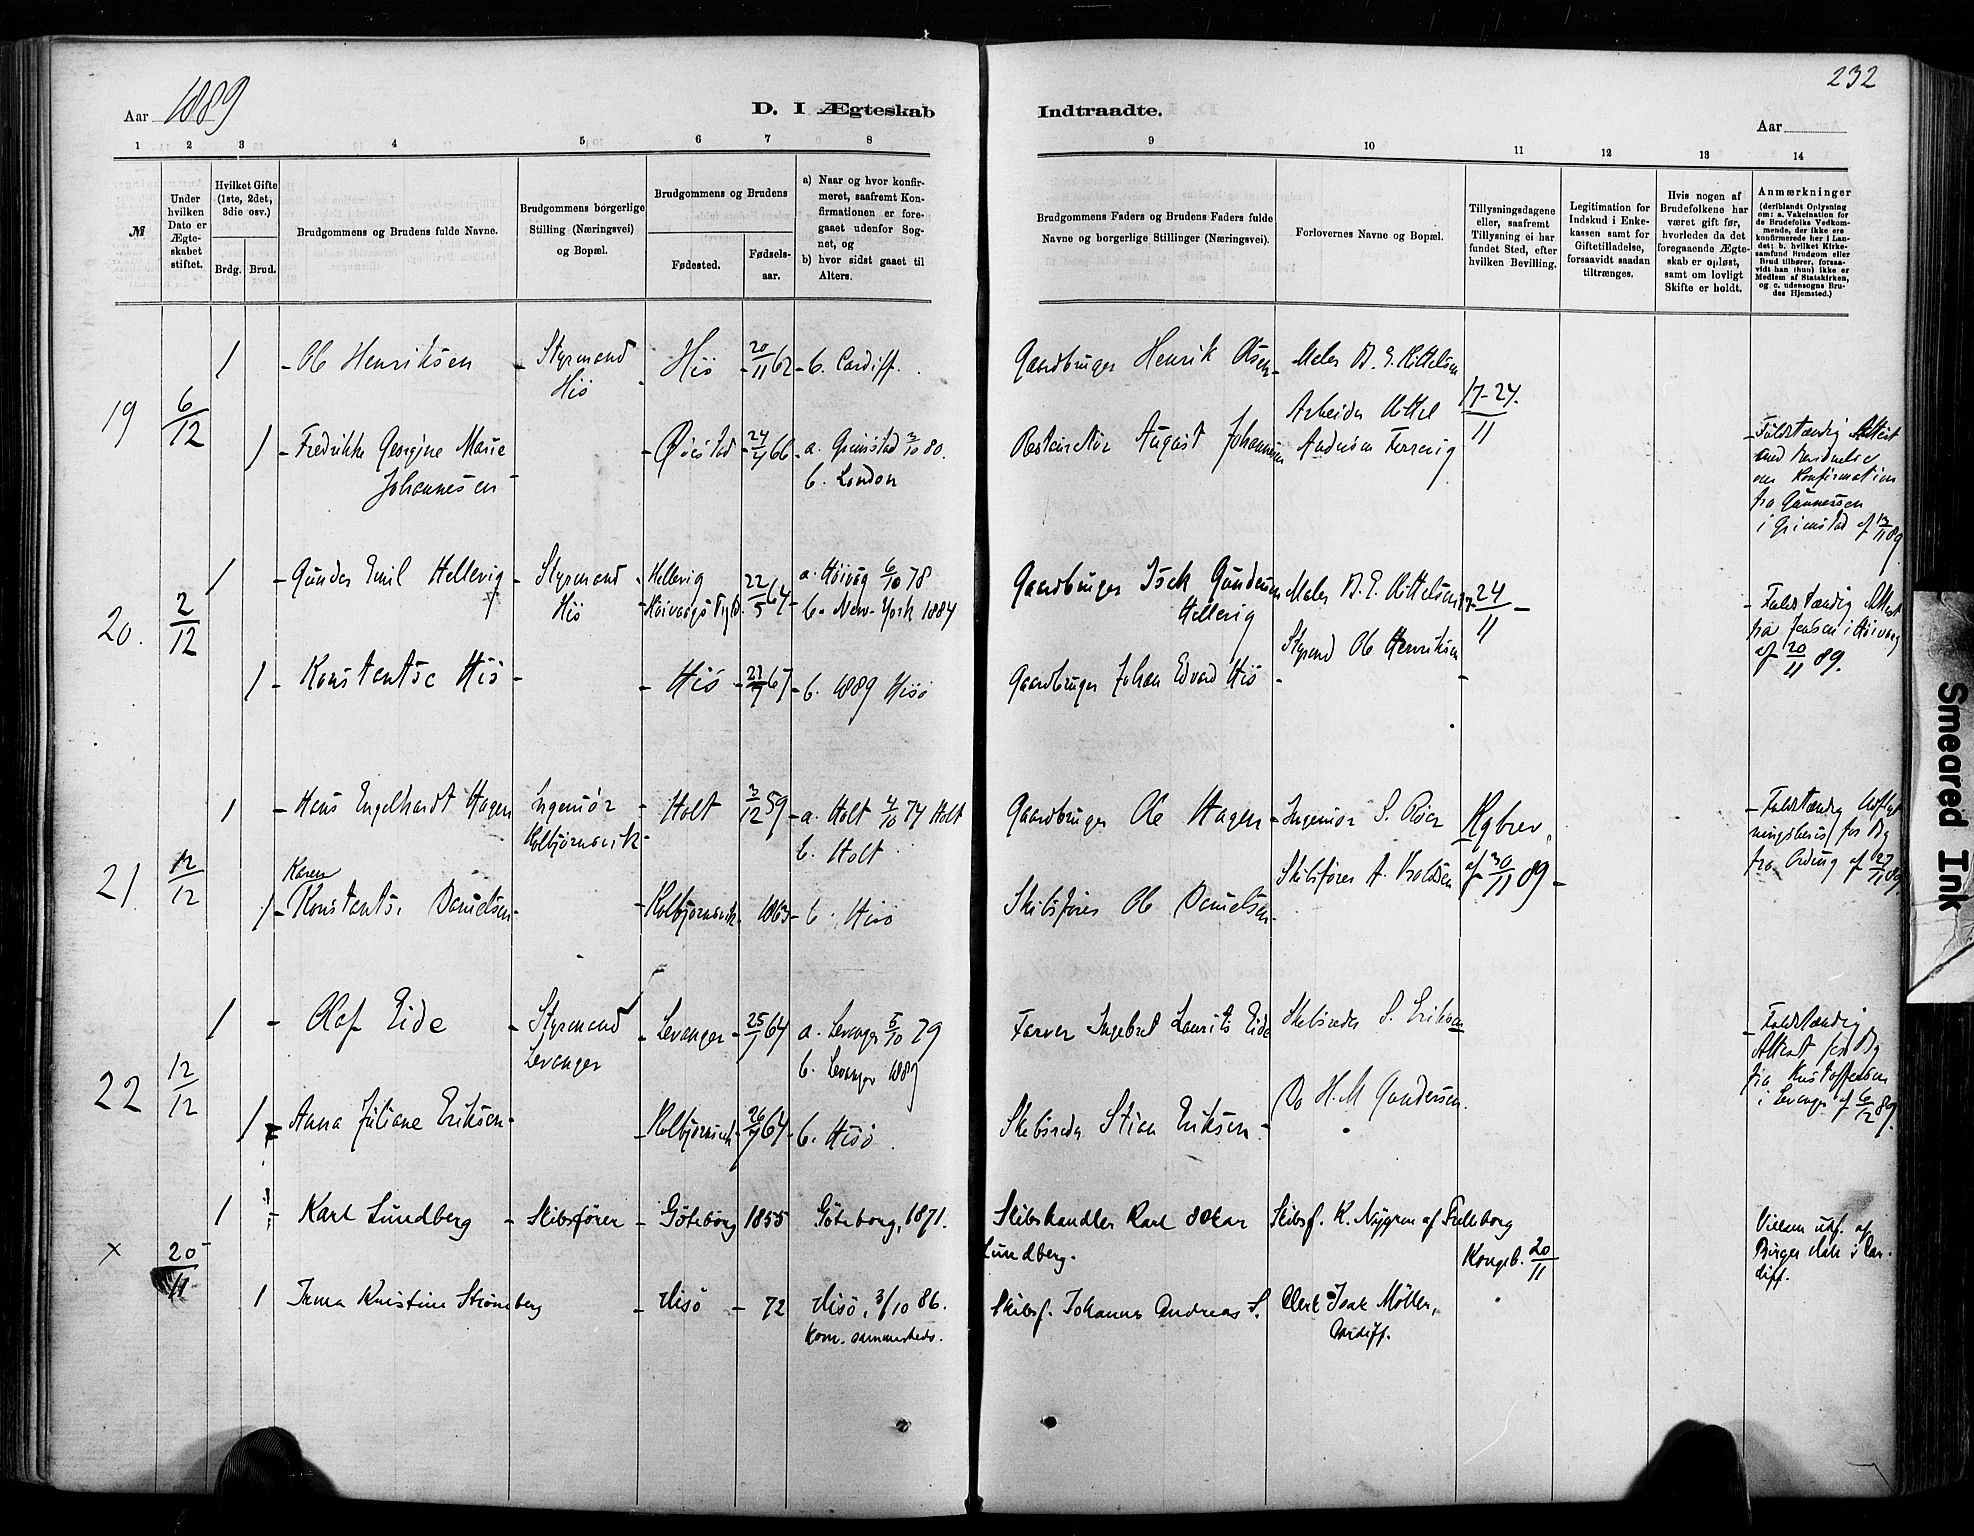 232
Aar 1889
D. I Ægteskab
Indtraadte.
Aar
1 2 3 4 5 6 7 8
9 10 11 12 13 14
№
Under hvilken Dato er Ægteskabet stiftet.
Hvilket Gifte (1ste, 2det, 3die osv.)
Brdg. Brud.
Brudgommens og Brudens fulde Navne.
Brudgommens borgerlige Stilling (Næringsvei) og Bopæl.
Brudgommens og Brudens
Fødested.
Fødselsaar.
a) Naar og hvor konfirmeret, saafremt Konfirmationen er foregaaet udenfor Sognet, og
b) hvor sidst gaaet til Alters.
Brudgommens Faders og Brudens Faders fulde Navne og borgerlige Stillinger (Næringsvei).
Forlovernes Navne og Bopæl.
Tillysningsdagene eller, saafremt Tillysning ei har fundet Sted, efter hvilken Bevilling.
Legitimation for Indskud i Enkekassen samt for Giftetilladelse, forsaavidt saadan tiltrænges.
Hvis nogen af Brudefolkene har været gift før, hvorledes da det foregaaende Ægteskab er opløst, samt om lovligt Skifte er holdt.
Anmærkninger (deriblandt Oplysning om: a. Vakcination for de Brudefolks Vedkommende, der ikke ere konfirmerede her i Landet; b. hvilket Kirkesamfund Brudgom eller Brud tilhører, forsaavidt han (hun) ikke er Medlem af Statskirken, og c. udensogns Brudes Hjemsted.)
19 6/12
1 - Ole Henriksen - Styrmand Hiö - Hiö - 20/11 62 - b. Cardiff.
Gaardbruger Henrik Olsen - Maler B. E. Kittelsen
17-24/11
Arbeider Kittel
1 - Fredrikke Georgine Marie Johannesen - Øiestad - 24/4 66 - a. Grimstad 3/10 80.
b. London
August Johannesen
Fuldstændig Attest
om Konfirmation
fra Gunnessen
i Grimstad af 13/11 89
20. 2/12
1 - Gunder Emil Hellevig - Styrmand Hiö - Hellevig
22/5 64 - a. Höivag 6/10 78
b. New-York 1884
Gaardbruger Isak Gundersen Hellevig
Maler B. E. Kittelsen 17-24/11 -
Styrmd Ole Henriksen
- Fuldstændig Attest
fra Jensen i Höivag
af 20/11 89.
1 - Konstantse Hiö - Hiö - 67 - b. 1889 Hisö
Gaardbruger Johan Edvard Hiö -
21. 12/12
1 - Hans Engelhardt Hagen - Ingeniör Kolbjørnsvik - Holt 3/12 59 - a. Holt 4/10 74 Holt
b. Holt
Gaardbruger Ole Hagen - Ingeniör S. Röer Kgbrev. af 30/11 89 -
Skibsfører A.
- Fuldstændig
af 27/11 89
Karen
1 - Konstantse Danielsen - Kolbjørnsvik - 1863 - b. Hisö
Skibsfører Ole Danielsen -
22 12/12
1 - Olaf Eide - Styrmand Levanger - Levanger - 25/7 64 a. Levanger 5/10 79
b. Levanger 1889
Farver Ingebret Laurits Eide
Skibsreder S. Eriksen
- Fuldstændig
Attest for Bg
fra Kristoffersen
i Levanger af 6/12 89.
1 - Anna Juliane Eriksen - Kolbjørnsvik - 26/7 64 - b. Hisö
Skibsreder Stian Eriksen -
Do H. M Gundersen.
x 20/11
1 - Karl Lundberg - Skibsfører - Göteborg 1855 Göteborg, 1871.
Skibshandler Karl Oskar Lundberg.
Skibsf. K. Nygren af
Kongeb. 20/11
Vielsen udf. af
Birger i Cardiff.
1 Irma Kristine Strømberg - Hisö - 72 Hisö, 3/10 86.
Kom. sammesteds.
Skibsf. Johannes Andreas S.
Clerk Isak Möller,
Cardiff.
Smeared Ink